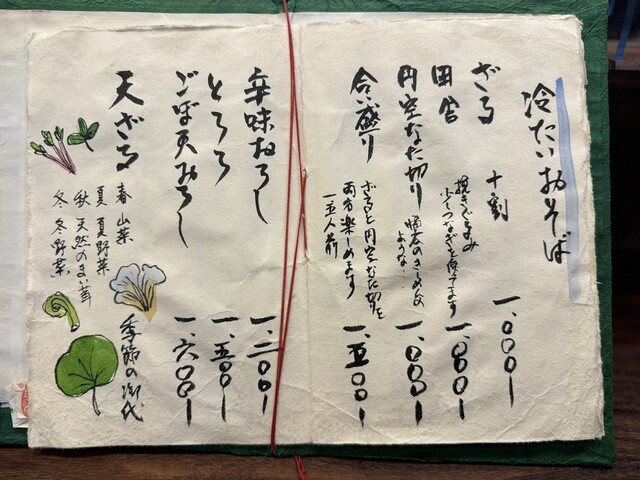 冷たいおそば
ざる 十割 一、〇〇〇ー
田舎 挽きぐるみ
つなぎを使てます 一、〇〇〇ー
円空なた切り
ような‥ 一、〇〇〇ー
合い盛り ざると円空なた切りと
両方楽しめます
一・五人前 一、五〇〇ー
辛味おろし 一、二〇〇ー
とろろ 一、五〇〇ー
ごぼ天おろし 一、六〇〇ー
天ざる
春 山菜
夏 夏野菜
秋 天然のまい茸
冬 冬野菜
季節の御代